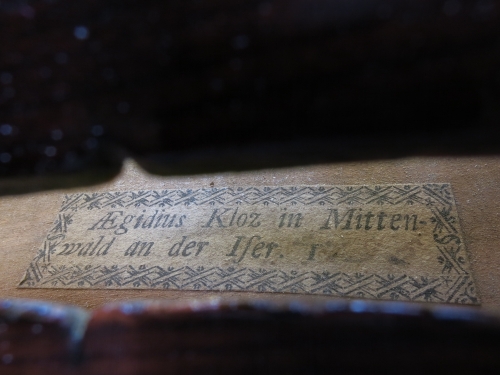 Ægidius Kloz in Mitten-
wald an der Iſer. 1